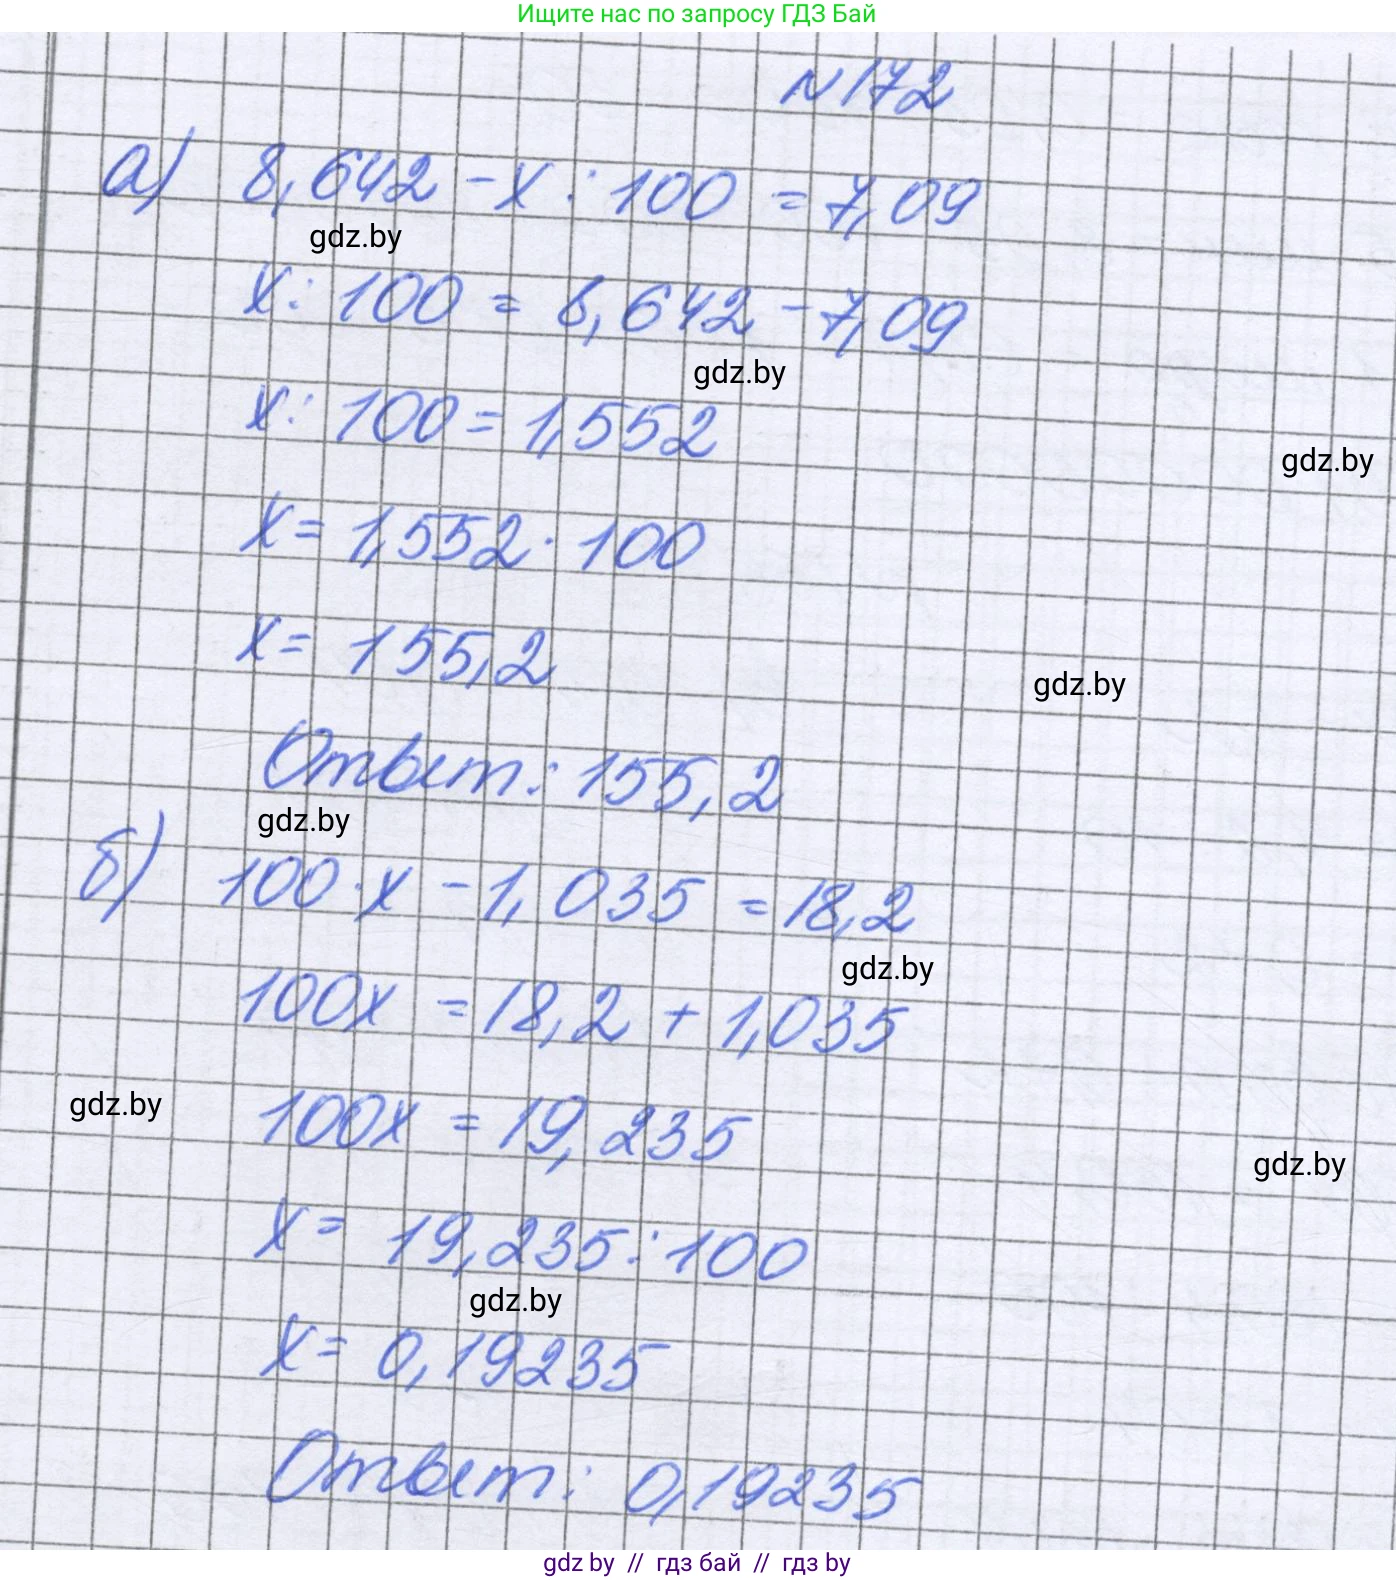 Ищите нас по запросу ГДЗ Бай
N172
а) 8,642 - x : 100 = 7,09
gdz.by
x : 100 = 8,642 - 7,09
gdz.by
x : 100 = 1,552
gdz.by
x = 1,552 · 100
x = 155,2
gdz.by
Ответ: 155,2
gdz.by
б) 100 · x - 1,035 = 18,2
gdz.by
100x = 18,2 + 1,035
gdz.by
100x = 19,235
gdz.by
x = 19,235 : 100
gdz.by
x = 0,19235
Ответ: 0,19235
gdz by // гдз бай // гдз by